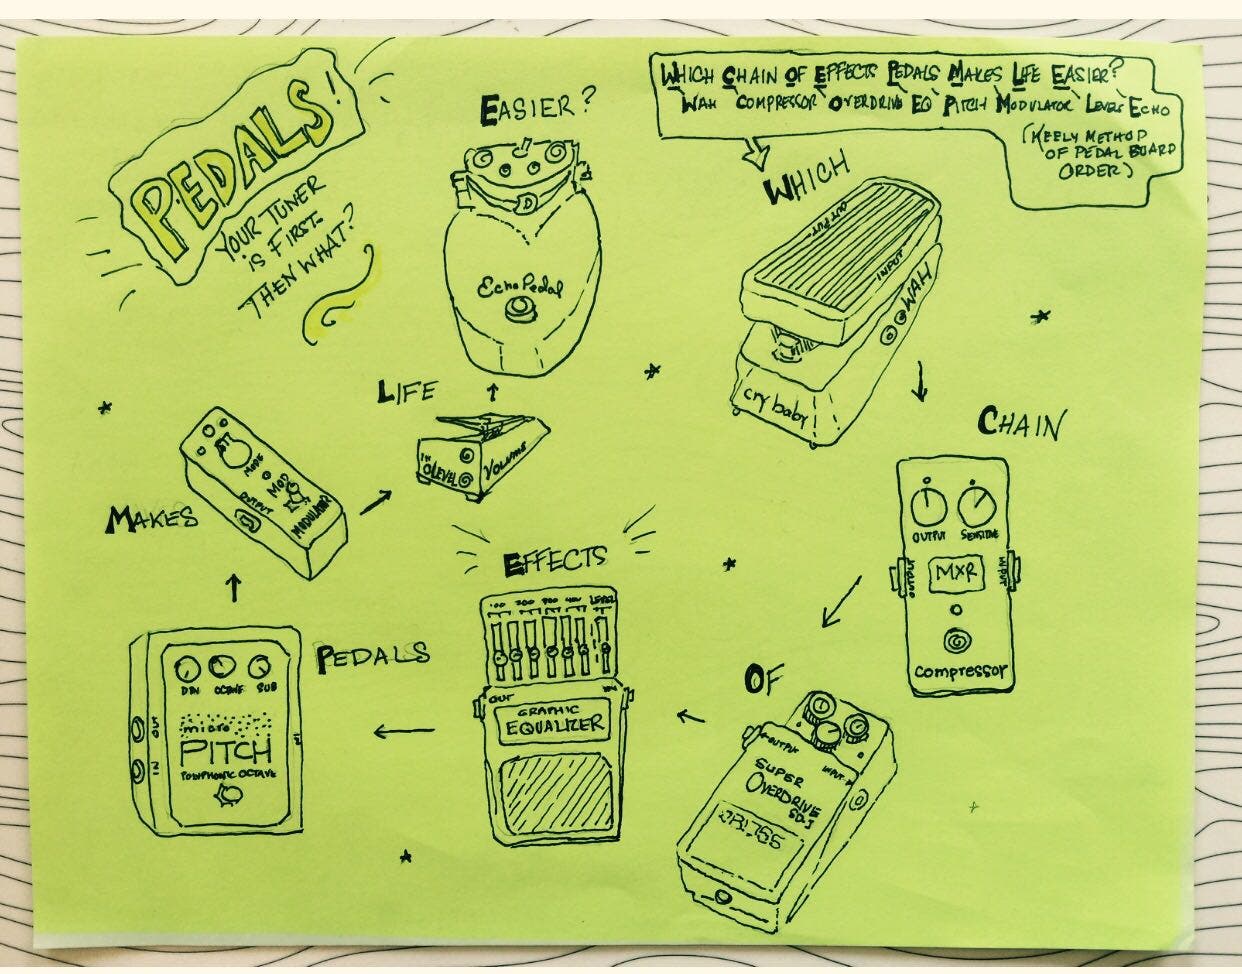 PEDALS!
YOUR TUNER
IS FIRST.
THEN WHAT?
WHICH CHAIN OF EFFECTS PEDALS MAKES LIFE EASIER?
WAH COMPRESSOR OVERDRIVE EQ PITCH MODULATOR LEVEL ECHO
(KEELY METHOD
OF PEDAL BOARD
ORDER)
WHICH
OUTPUT
INPUT
WAH
cry baby
CHAIN
OUTPUT SENSITIVE
MXR
INPUT
compressor
OF
OUTPUT
INPUT
SUPER
OVERDRIVE
SD-1
BOSS
EFFECTS
100 200 800 LEVEL
OUT IN
GRAPHIC
EQUALIZER
PEDALS
OCTAVE SUB
micro
PITCH
POLYPHONIC OCTAVE
MAKES
MODE
MOD
OUTPUT
MODULATOR
LIFE
IN
LEVEL
VOLUME
EASIER?
D
Echo Pedal